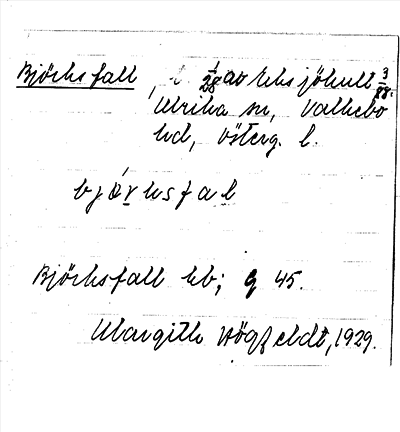 Björksfall, t. 1/28 av Eksjöhult 3/88.
Ulrika sn, Valkebo
hd, Österg. l.
bjö́rksfal
Björksfall kb; g 45.
Margith Högfeldt, 1929.